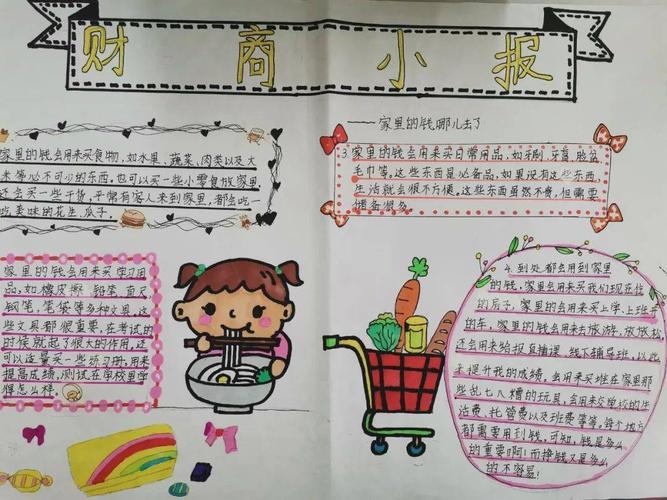 财商小报
——家里的钱哪儿去了
家里的钱会用来买食物,如水果、蔬菜、肉类以及大
米等必不可少的东西,也可以买一些小零食放家里,
还会买一些干货,平常有客人来到家里,都会吃一
吃美味的花生、瓜子。
家里的钱会用来买学习用
品,如橡皮擦、铅笔、直尺、
钢笔、笔袋等多种文具,这
些文具都很重要,在考试的
时候就起了很大的作用,还
可以适量买一些练习册,用来
提高成绩,测试在学校里学
得怎么样。
3.家里的钱会用来买日常用品,如牙刷,牙膏,脸盆
毛巾等,这些东西是必备品,如果没有这些东西,
生活就会很不方便。这些东西虽然不贵,但需要
储备很多。
4.到处都会用到家里
的钱,家里的钱会用来买我们现在住
的房子,家里的会用来买上学、上班
的车,家里的钱会用来去旅游,放放松,
还会用来给报直播课,线下辅导班,以此
来提升我的成绩,会用来买堆在家里那
些乱七八糟的玩具,会用来交学校的生
活费、托管费以及班费等等,每个地方
都需要用到钱,可知,钱是多么
的重要啊!而挣钱又是多么
的不容易!